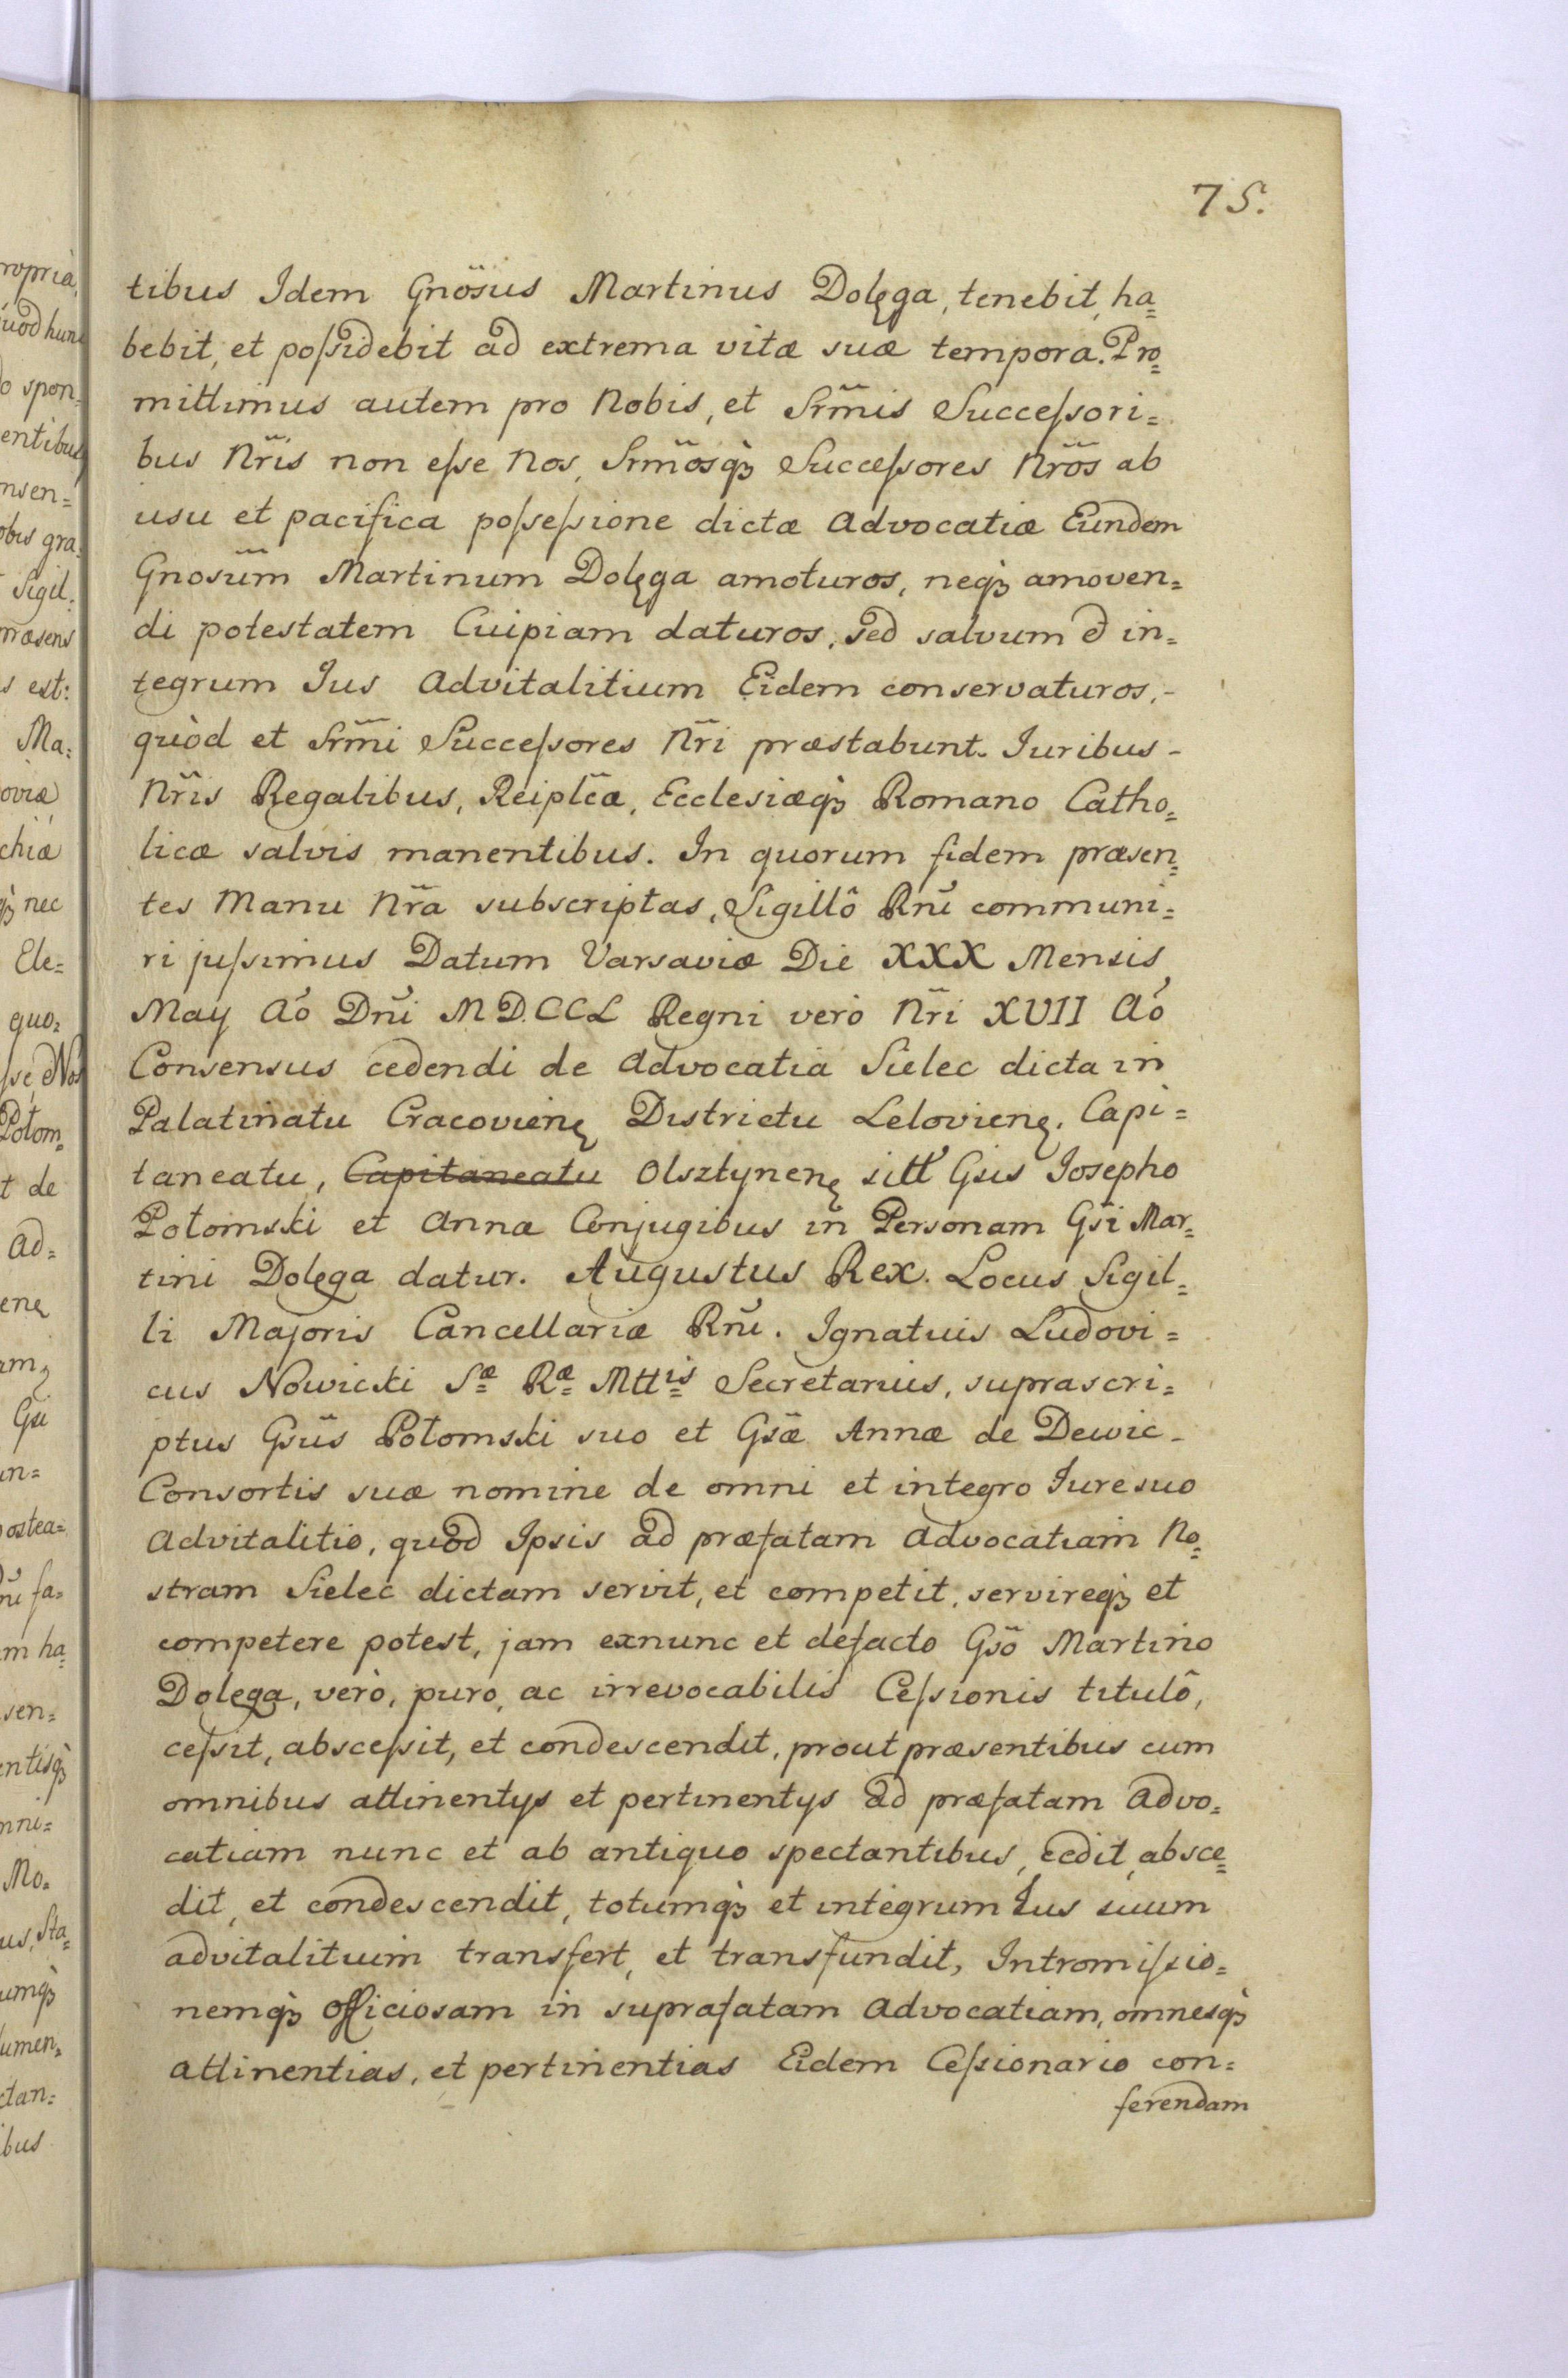 75.
tibus Idem Gnōsus Martinus Dolęga, tenebit, ha=
bebit, et poſsidebit ad extrema vitæ suæ tempora. Pro=
mittimus autem pro Nobis, et Srm̃is Succeſsori=
bus Nr̃is non eſse Nos, Srm̃osq₃ Succeſsores Nr̃os ab
usu et pacifica poſseſsione dictæ Advocatiæ Eundem
Gnosum̃ Martinum Dolęga amoturos, neq₃ amoven=
di potestatem Cuipiam daturos, sed salvum & in=
tegrum Ius Advitalitium Eidem conservaturos,-
quòd et Srm̃i Succeſsores Nr̃i præstabunt. Iuribus-
Nr̃is Regalibus, Reiplc̃æ, Ecclesiæq₃ Romano Catho=
licæ salvis manentibus. In quorum fidem præsen=
tes Manu Nr̃a subscriptas, Sigillô Rnĩ communi=
ri juſsimus Datum Varsaviæ Die XXX Mensis
May Aó Dnĩ MD.CCL Regni verò Nr̃i XVII Aó
Consensus cedendi de Advocatia Sielec dicta in
Palatinatu Cracovienȩ Districtu Lelovienȩ. Capi=
taneatu, Capitaneatu Olsztynenȩ sitt Gsis Iosepho
Potomski et Annæ Conjugibus in Personam Gsĩ Mar=
tini Dolęga datur. Augustus Rex. Locus Sigil=
li Majoris Cancellariæ Rnĩ. Ignatius Ludovi=
cus Nowicki Sæ Ræ Mttis Secretarius, suprascri=
ptus Gsũs Potomski suo et Gsæ̃ Annæ de Dewic-
Consortis suæ nomine de omni et integro Iure suo
Advitalitio, quod Ipsis ad præfatam Advocatiam No=
stram Sielec dictam servit, et competit, servireq₃ et
competere potest, jam exnunc et defacto Gsõ Martino
Dolęga, verò, puro, ac irrevocabilis Ceſsionis titulô,
ceſsit, absceſsit, et condescendit, prout præsentibus cum
omnibus attinentys et pertinentys ad præfatam Advo=
catiam nunc et ab antiquo spectantibus, cedit, absce=
dit, et condescendit, totumq₃ et integrum Ius suum
advitalitium transfert, et transfundit, Intromiſsio=
nemq₃ Officiosam in suprafatam Advocatiam, omnesq₃
attinentias, et pertinentias Eidem Ceſsionario con=
ferendam